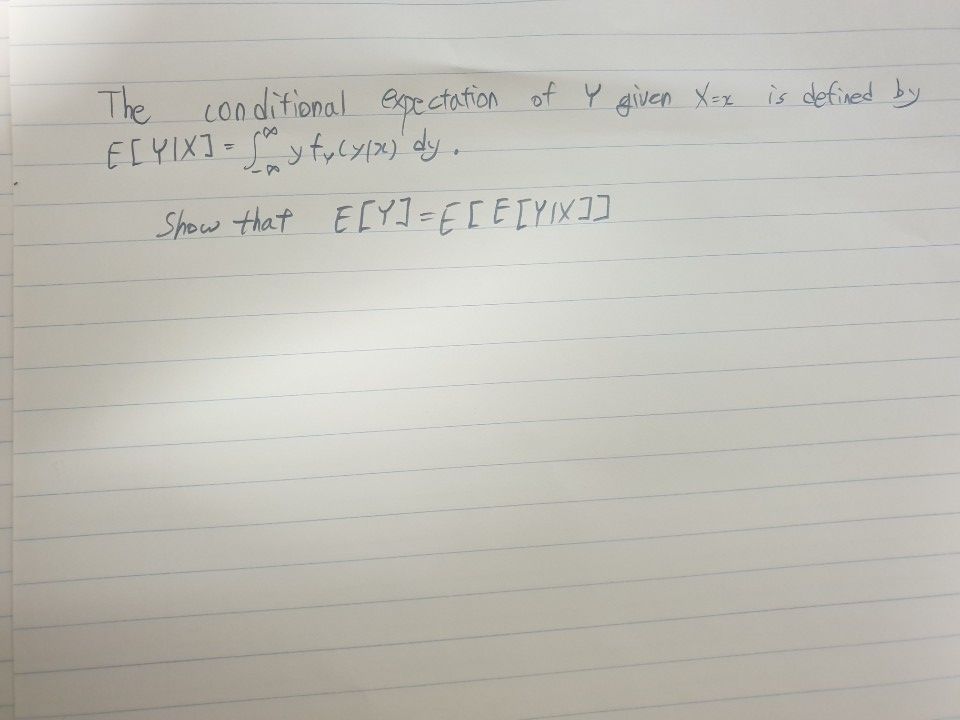 The conditional expectation of Y given X=x is defined by
E[Y|X] = ∫_{-∞}^{∞} y f_Y(y|x) dy.
Show that E[Y] = E[E[Y|X]]